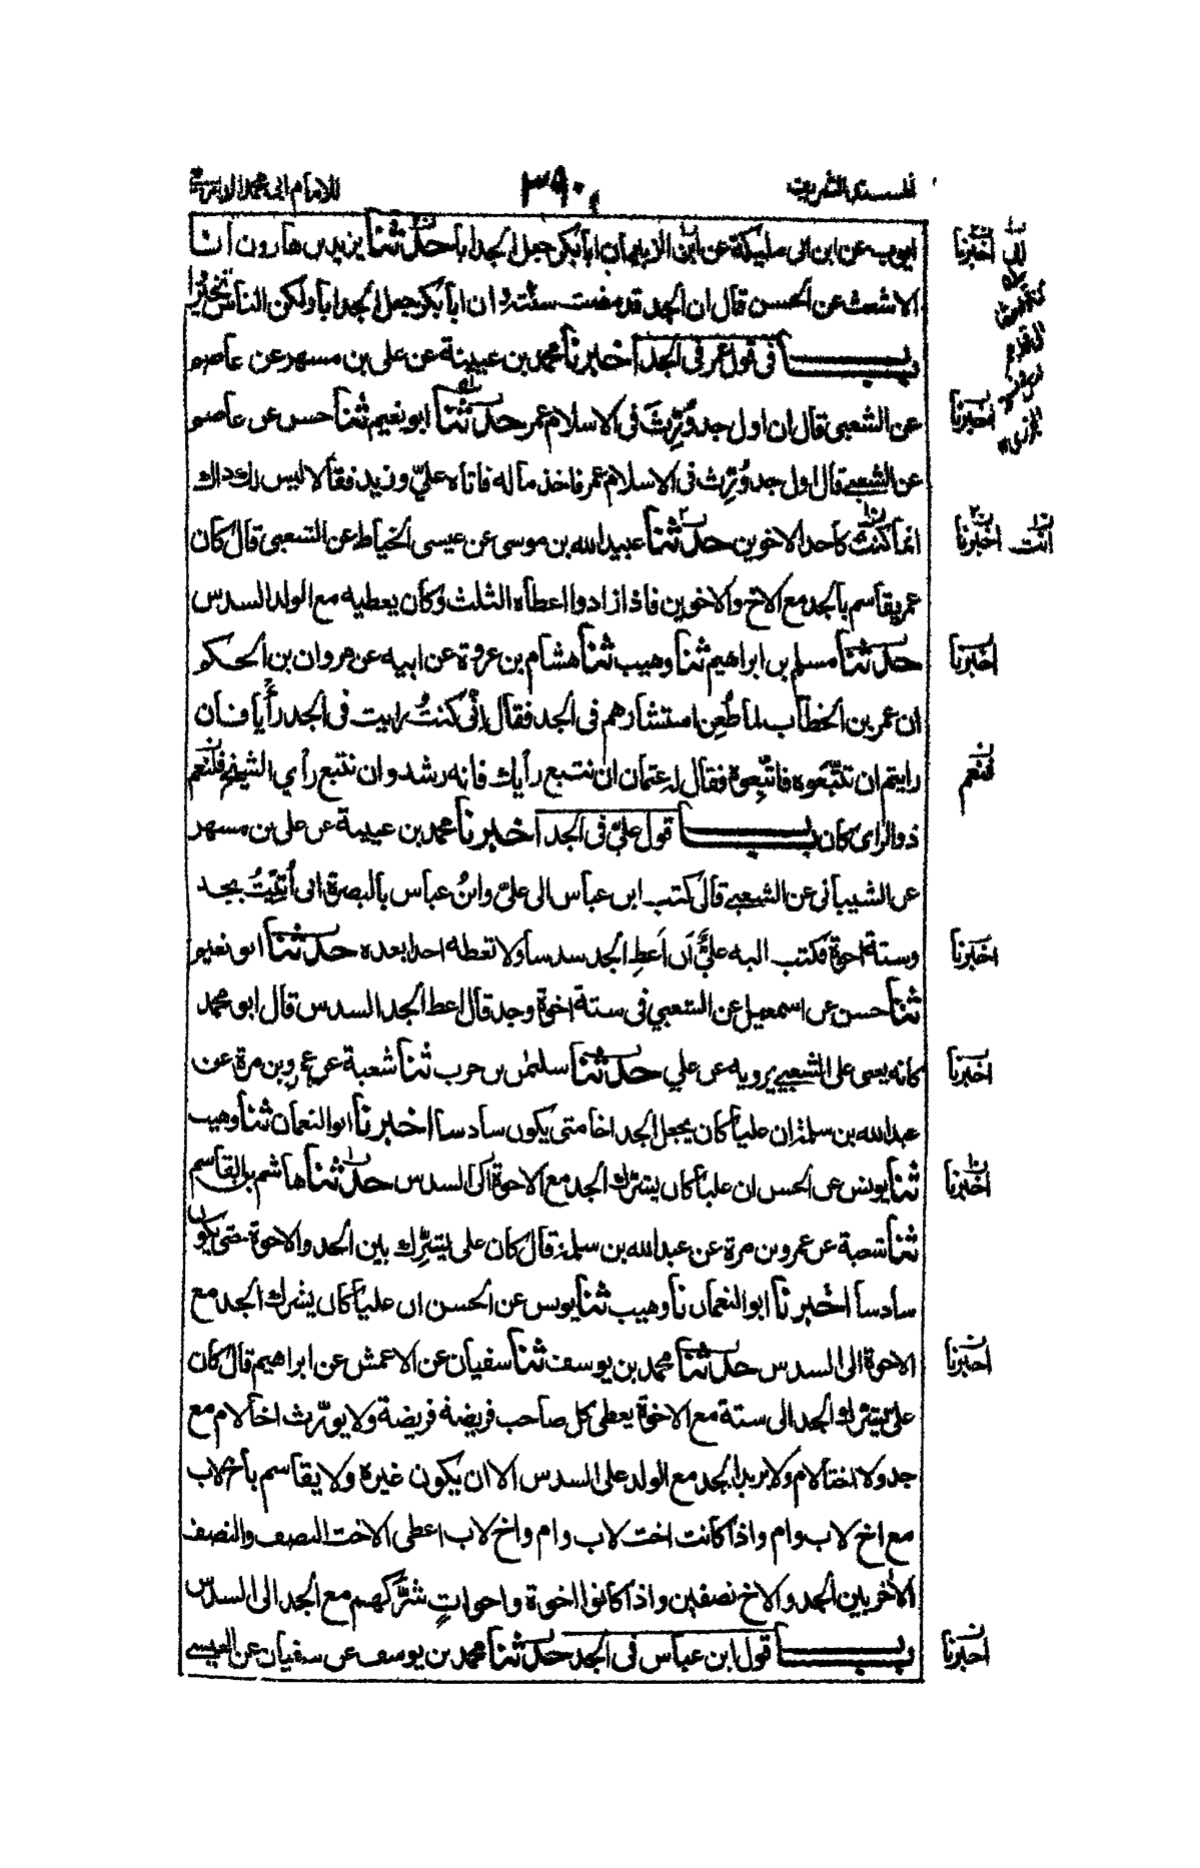 المسند الشريف ٣٩٠ للامام ابى محمد الدارمى
ايوب عن ابن ابى مليكة عن ابن الزبير ان ابا بكر جعل الجد ابا حدثنا يزيد بن هارون انا
الاشعث عن الحسن قال ان الجد قد مضت سنته وان ابا بكر جعل الجد ابا ولكن الناس تخيروا
باب فى قول عمر فى الجد اخبرنا محمد بن عيينة عن على بن مسهر عن عاصم
عن الشعبى قال ان اول جد وُرِّثَ فى الاسلام عمر حدثنا ابو نعيم ثنا حسن عن عاصم
عن الشعبى قال اول جد وُرِث فى الاسلام عمر فاخذ ماله فاتاه علىّ وزيد فقالا ليس لك ذاك
انما كنت كاحد الاخوين حدثنا عبيد الله بن موسى عن عيسى الخياط عن الشعبى قال كان
عمر يقاسم بالجد مع الاخ والاخوين فاذا زادوا اعطاه الثلث وكان يعطيه مع الولد السدس
حدثنا مسلم بن ابراهيم ثنا وهيب ثنا هشام بن عروة عن ابيه عن مروان بن الحكم
ان عمر بن الخطاب لما طُعِن استشارهم فى الجد فقال اِنّى كنتُ رايت فى الجد رأيا فان
رايتم ان تتّبعوه فاتّبِعوه فقال له عثمان ان نتبع رأيك فانه رشد وان نتبع رأي الشيخ فلنعم
ذو الراى كان باب قول علىّ فى الجد اخبرنا محمد بن عيينة عن على بن مسهر
عن الشيبانى عن الشعبى قال كتب ابن عباس الى علىّ وابنُ عباس بالبصرة انى أُتِيتُ بجد
وستة اخوة فكتب اليه علىٌّ اَن اَعطِ الجد سدسا ولا تعطه احدا بعده حدثنا ابو نعيم
ثنا حسن عن اسمعيل عن الشعبي فى ستة اخوة وجد قال اعط الجد السدس قال ابو محمد
كانه يعنى على الشعبى يرويه عن علي حدثنا سليمٰن بن حرب ثنا شعبة عن عمرو بن مرة عن
عبد الله بن سلمة ان عليا كان يجعل الجد اخا حتى يكون سادسا اخبرنا ابو النعمان ثنا وهيب
ثنا يونس عن الحسن ان عليا كان يشرّك الجد مع الاخوة الى السدس حدثنا هاشم بن القاسم
ثنا شعبة عن عمرو بن مرة عن عبد الله بن سلمة قال كان على يشرِّك بين الجد والاخوة حتى يكون
سادسا اخبرنا ابو النعمان نا وهيب ثنا يونس عن الحسن ان عليا كان يشرك الجد مع
الاخوة الى السدس حدثنا محمد بن يوسف ثنا سفيان عن الاعمش عن ابراهيم قال كان
علىّ يشرّك الجد الى ستة مع الاخوة يعطى كل صاحب فريضة فريضة ولا يورّث اخا لام مع
جد ولا اختا لام ولا يزيد الجد مع الولد على السدس الا ان يكون غيره ولا يقاسم باخ لاب
مع اخ لاب وام واذا كانت اخت لاب وام واخ لاب اعطى الاخت النصف والنصف
الآخر بين الجد والاخ نصفين واذا كانوا اخوة واخواتٍ شرَّكهم مع الجد الى السدس
باب قول ابن عباس فى الجد حدثنا محمد بن يوسف عن سفيان عن العيسى
اخبرنا
اخبرنا
انت اخبرنا
اخبرنا
فنعم
اخبرنا
اخبرنا
اخبرنا
اخبرنا
اخبرنا